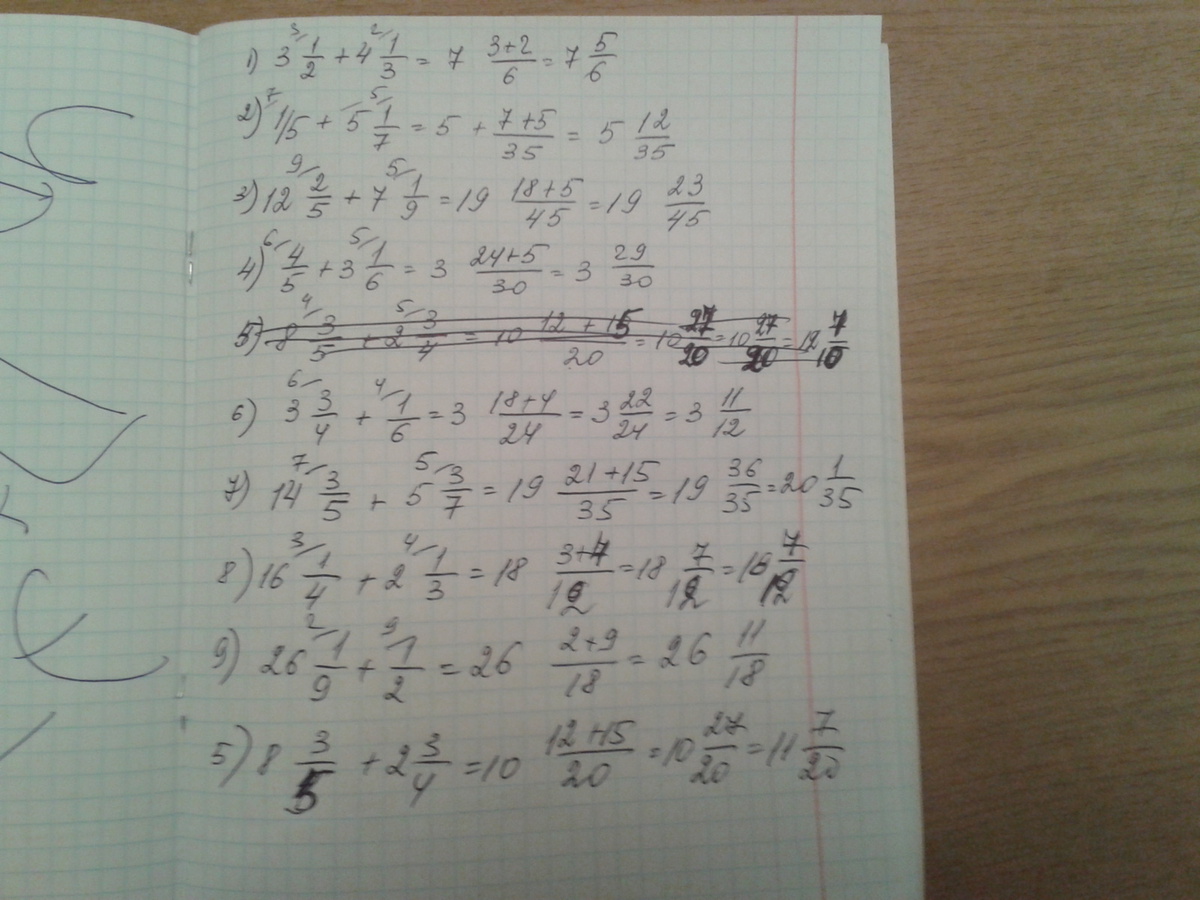 1) 3 ³⁄ 1/2 + 4 ²⁄ 1/3 = 7 (3+2)/6 = 7 5/6
2) ⁷⁄ 1/5 + 5 ⁵⁄ 1/7 = 5 + (7+5)/35 = 5 12/35
3) 12 ⁹⁄ 2/5 + 7 ⁵⁄ 1/9 = 19 (18+5)/45 = 19 23/45
4) ⁶⁄ 4/5 + 3 ⁵⁄ 1/6 = 3 (24+5)/30 = 3 29/30
5) 8 ⁴⁄ 3/5 + 2 ⁵⁄ 3/4 = 10 (12+15)/20 = 10 27/20 = 10 27/20 = 12 7/10
6) 3 ⁶⁄ 3/4 + ⁴⁄ 1/6 = 3 (18+4)/24 = 3 22/24 = 3 11/12
7) 14 ⁷⁄ 3/5 + 5 ⁵⁄ 3/7 = 19 (21+15)/35 = 19 36/35 = 20 1/35
8) 16 ³⁄ 1/4 + 2 ⁴⁄ 1/3 = 18 (3+4)/12 = 18 7/12 = 18 7/12
9) 26 ²⁄ 1/9 + ⁹⁄ 1/2 = 26 (2+9)/18 = 26 11/18
5) 8 3/5 + 2 3/4 = 10 (12+15)/20 = 10 27/20 = 11 7/20